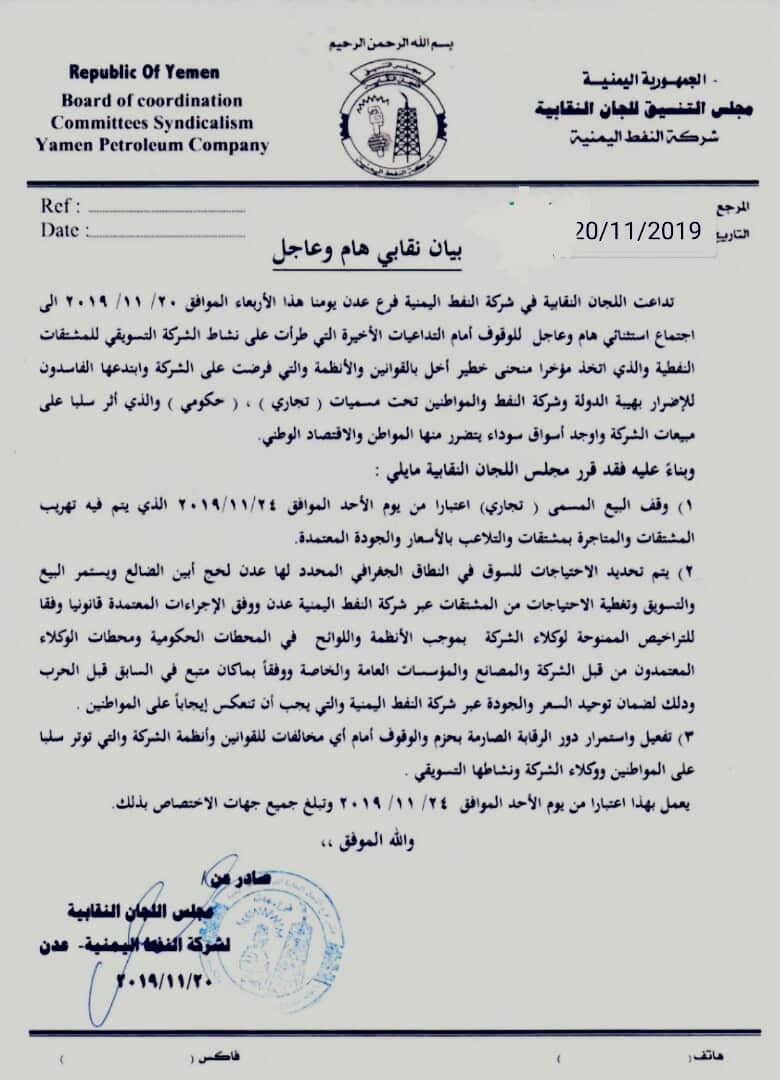 بسم الله الرحمن الرحيم
Republic Of Yemen
Board of coordination
Committees Syndicalism
Yamen Petroleum Company
مجلس التنسيق
للجان النقابية
شركة النفط اليمنية
- الجمهورية اليمنية
مجلس التنسيق للجان النقابية
شركة النفط اليمنية
Ref :
Date :
المرجع
التاريخ 20/11/2019
بيان نقابي هام وعاجل
تداعت اللجان النقابية في شركة النفط اليمنية فرع عدن يومنا هذا الأربعاء الموافق ٢٠/ ١١/ ٢٠١٩ الى
اجتماع استثنائي هام وعاجل للوقوف أمام التداعيات الأخيرة التي طرأت على نشاط الشركة التسويقي للمشتقات
النفطية والذي اتخذ مؤخرا منحنى خطير أخل بالقوانين والأنظمة والتي فرضت على الشركة وابتدعها الفاسدون
للإضرار بهيبة الدولة وشركة النفط والمواطنين تحت مسميات ( تجاري ) ، ( حكومي ) والذي أثر سلبا على
مبيعات الشركة واوجد أسواق سوداء يتضرر منها المواطن والاقتصاد الوطني.
وبناءً عليه فقد قرر مجلس اللجان النقابية مايلي :
١) وقف البيع المسمى ( تجاري) اعتبارا من يوم الأحد الموافق ٢٠١٩/١١/٢٤ الذي يتم فيه تهريب
المشتقات والمتاجرة بمشتقات والتلاعب بالأسعار والجودة المعتمدة.
٢) يتم تحديد الاحتياجات للسوق في النطاق الجغرافي المحدد لها عدن لحج أبين الضالع ويستمر البيع
والتسويق وتغطية الاحتياجات من المشتقات عبر شركة النفط اليمنية عدن ووفق الإجراءات المعتمدة قانونيا وفقا
للتراخيص الممنوحة لوكلاء الشركة بموجب الأنظمة واللوائح في المحطات الحكومية ومحطات الوكلاء
المعتمدون من قبل الشركة والمصانع والمؤسسات العامة والخاصة ووفقاً بماكان متبع في السابق قبل الحرب
وذلك لضمان توحيد السعر والجودة عبر شركة النفط اليمنية والتي يجب أن تنعكس إيجاباً على المواطنين .
٣) تفعيل واستمرار دور الرقابة الصارمة بحزم والوقوف أمام أي مخالفات للقوانين وأنظمة الشركة والتي توتر سلبا
على المواطنين ووكلاء الشركة ونشاطها التسويقي .
يعمل بهذا اعتبارا من يوم الأحد الموافق ٢٤/ ١١/ ٢٠١٩ وتبلغ جميع جهات الاختصاص بذلك.
والله الموفق ،،
صادر من/
مجلس اللجان النقابية
لشركة النفط اليمنية- عدن
٢٠١٩/١١/٢٠
هاتف( ) فاكس ( )